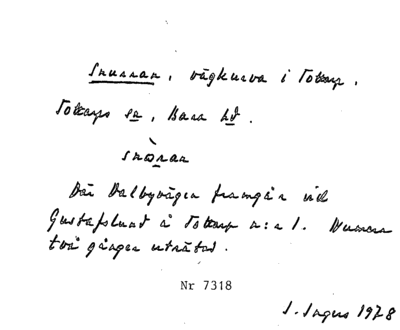 Snurran, vägkurva i Tottarp.
Tottarps sn, Bara hd.
snòran
Där Dalbyvägen framgår vid
Gustafslund å Tottarp n:r 1. Numera
två gånger uträtad.
Nr 7318
S. Ingers 1978